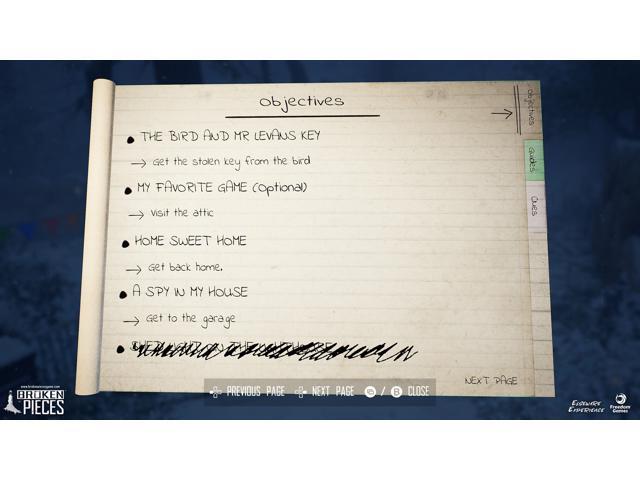 Objectives
Objectives
Guides
Clues
THE BIRD AND MR LEVANS KEY
→ Get the stolen key from the bird
MY FAVORITE GAME (Optional)
→ Visit the attic
HOME SWEET HOME
→ Get back home.
A SPY IN MY HOUSE
→ Get to the garage
NEXT PAGE
PREVIOUS PAGE NEXT PAGE / B CLOSE
BROKEN
PIECES
Elseware
Experience
Freedom
Games